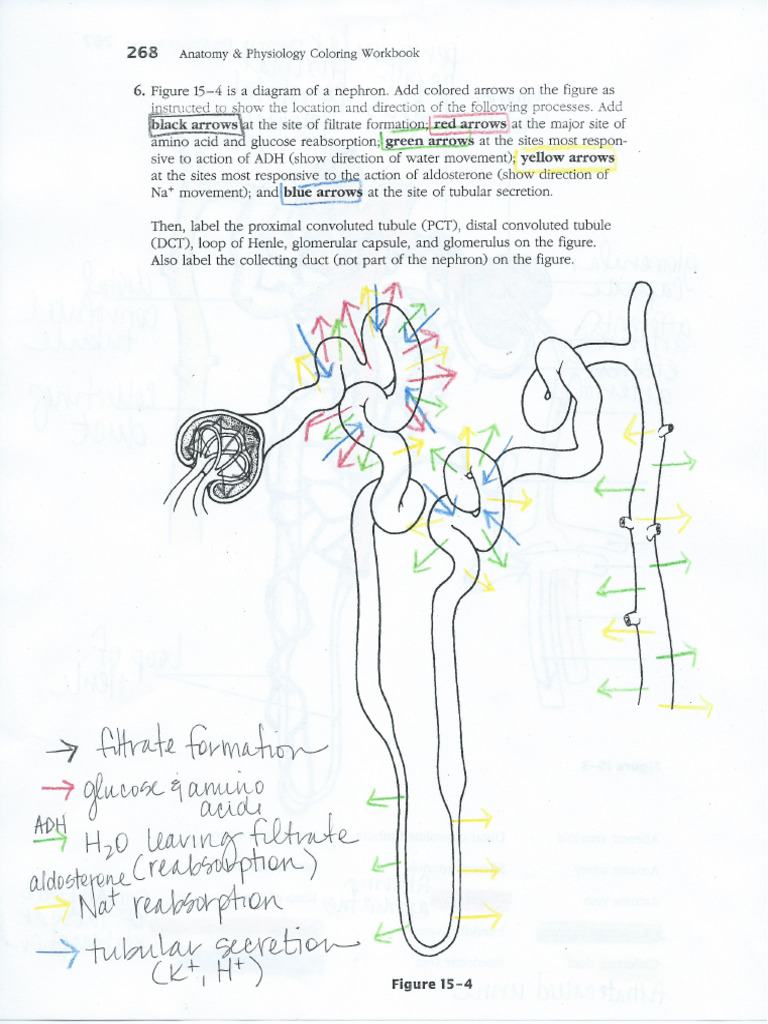 268 Anatomy & Physiology Coloring Workbook
6. Figure 15–4 is a diagram of a nephron. Add colored arrows on the figure as
instructed to show the location and direction of the following processes. Add
black arrows at the site of filtrate formation; red arrows at the major site of
amino acid and glucose reabsorption; green arrows at the sites most respon-
sive to action of ADH (show direction of water movement); yellow arrows
at the sites most responsive to the action of aldosterone (show direction of
Na+ movement); and blue arrows at the site of tubular secretion.
Then, label the proximal convoluted tubule (PCT), distal convoluted tubule
(DCT), loop of Henle, glomerular capsule, and glomerulus on the figure.
Also label the collecting duct (not part of the nephron) on the figure.
→ filtrate formation
→ glucose & amino
acids
ADH
→ H2O leaving filtrate
(reabsorption)
aldosterone
→ Na+ reabsorption
→ tubular secretion
(K+, H+)
Figure 15–4